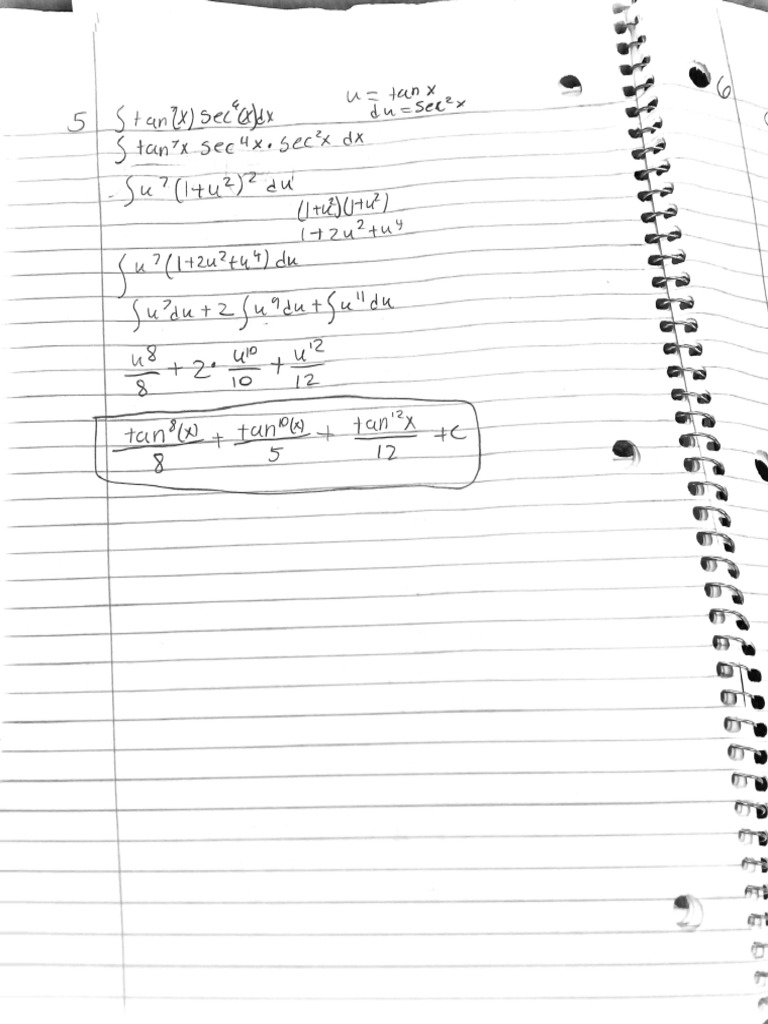 5 ∫tan⁷(x) sec⁶(x)dx u = tan x
du = sec²x
∫ tan⁷x sec⁴x · sec²x dx
∫u⁷(1+u²)² du
(1+u²)(1+u²)
1+2u²+u⁴
∫u⁷(1+2u²+u⁴) du
∫u⁷du + 2∫u⁹du + ∫u¹¹du
u⁸/8 + 2· u¹⁰/10 + u¹²/12
tan⁸(x)/8 + tan¹⁰(x)/5 + tan¹²x/12 +C
6